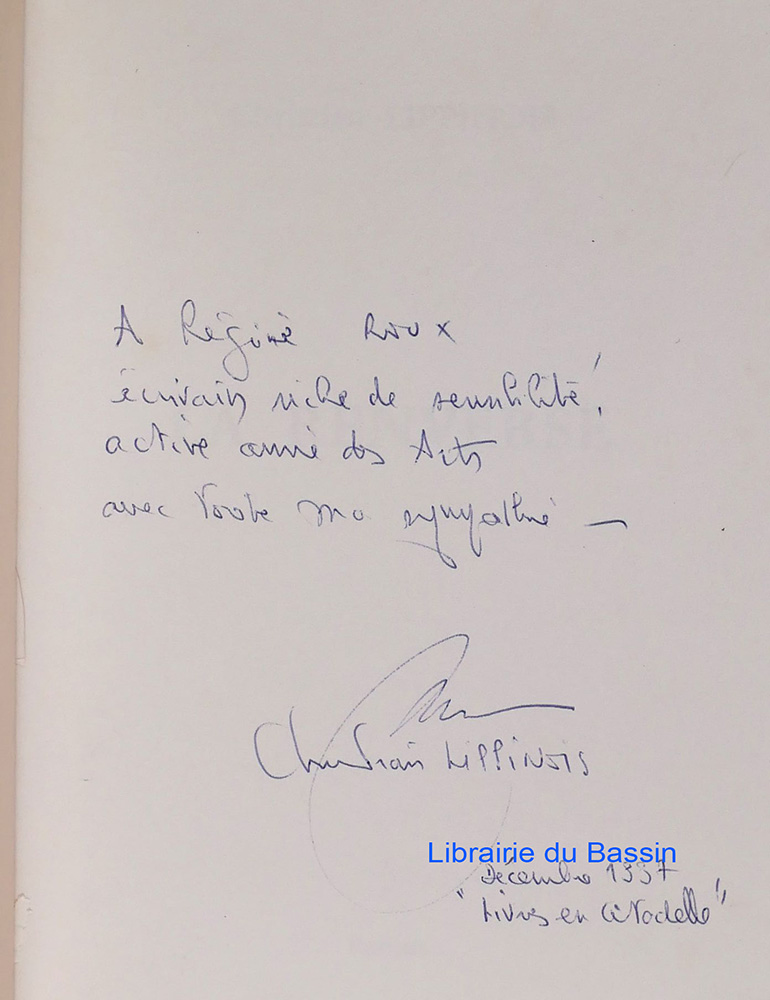 A Régine Roux
écrivain riche de sensibilité,
active amie des Arts
avec toute ma sympathie —
Christian LIPPINOIS
Librairie du Bassin
Décembre 1997
"Livres en Citadelle"